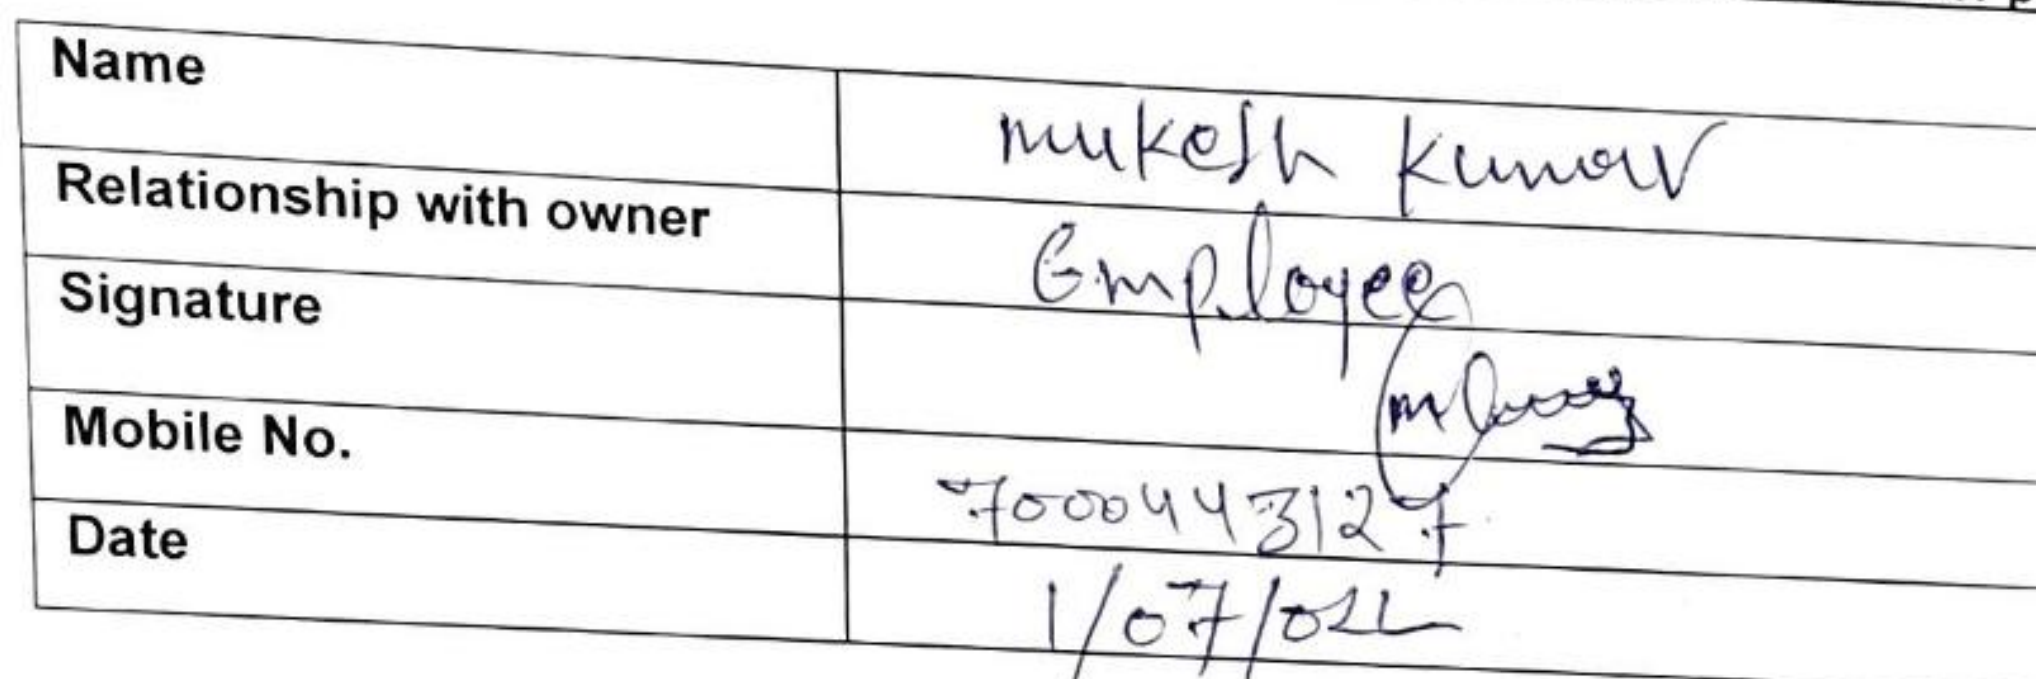 Name mukesh kumar
Relationship with owner Employee
Signature
Mobile No. 7000443127
Date 1/07/022